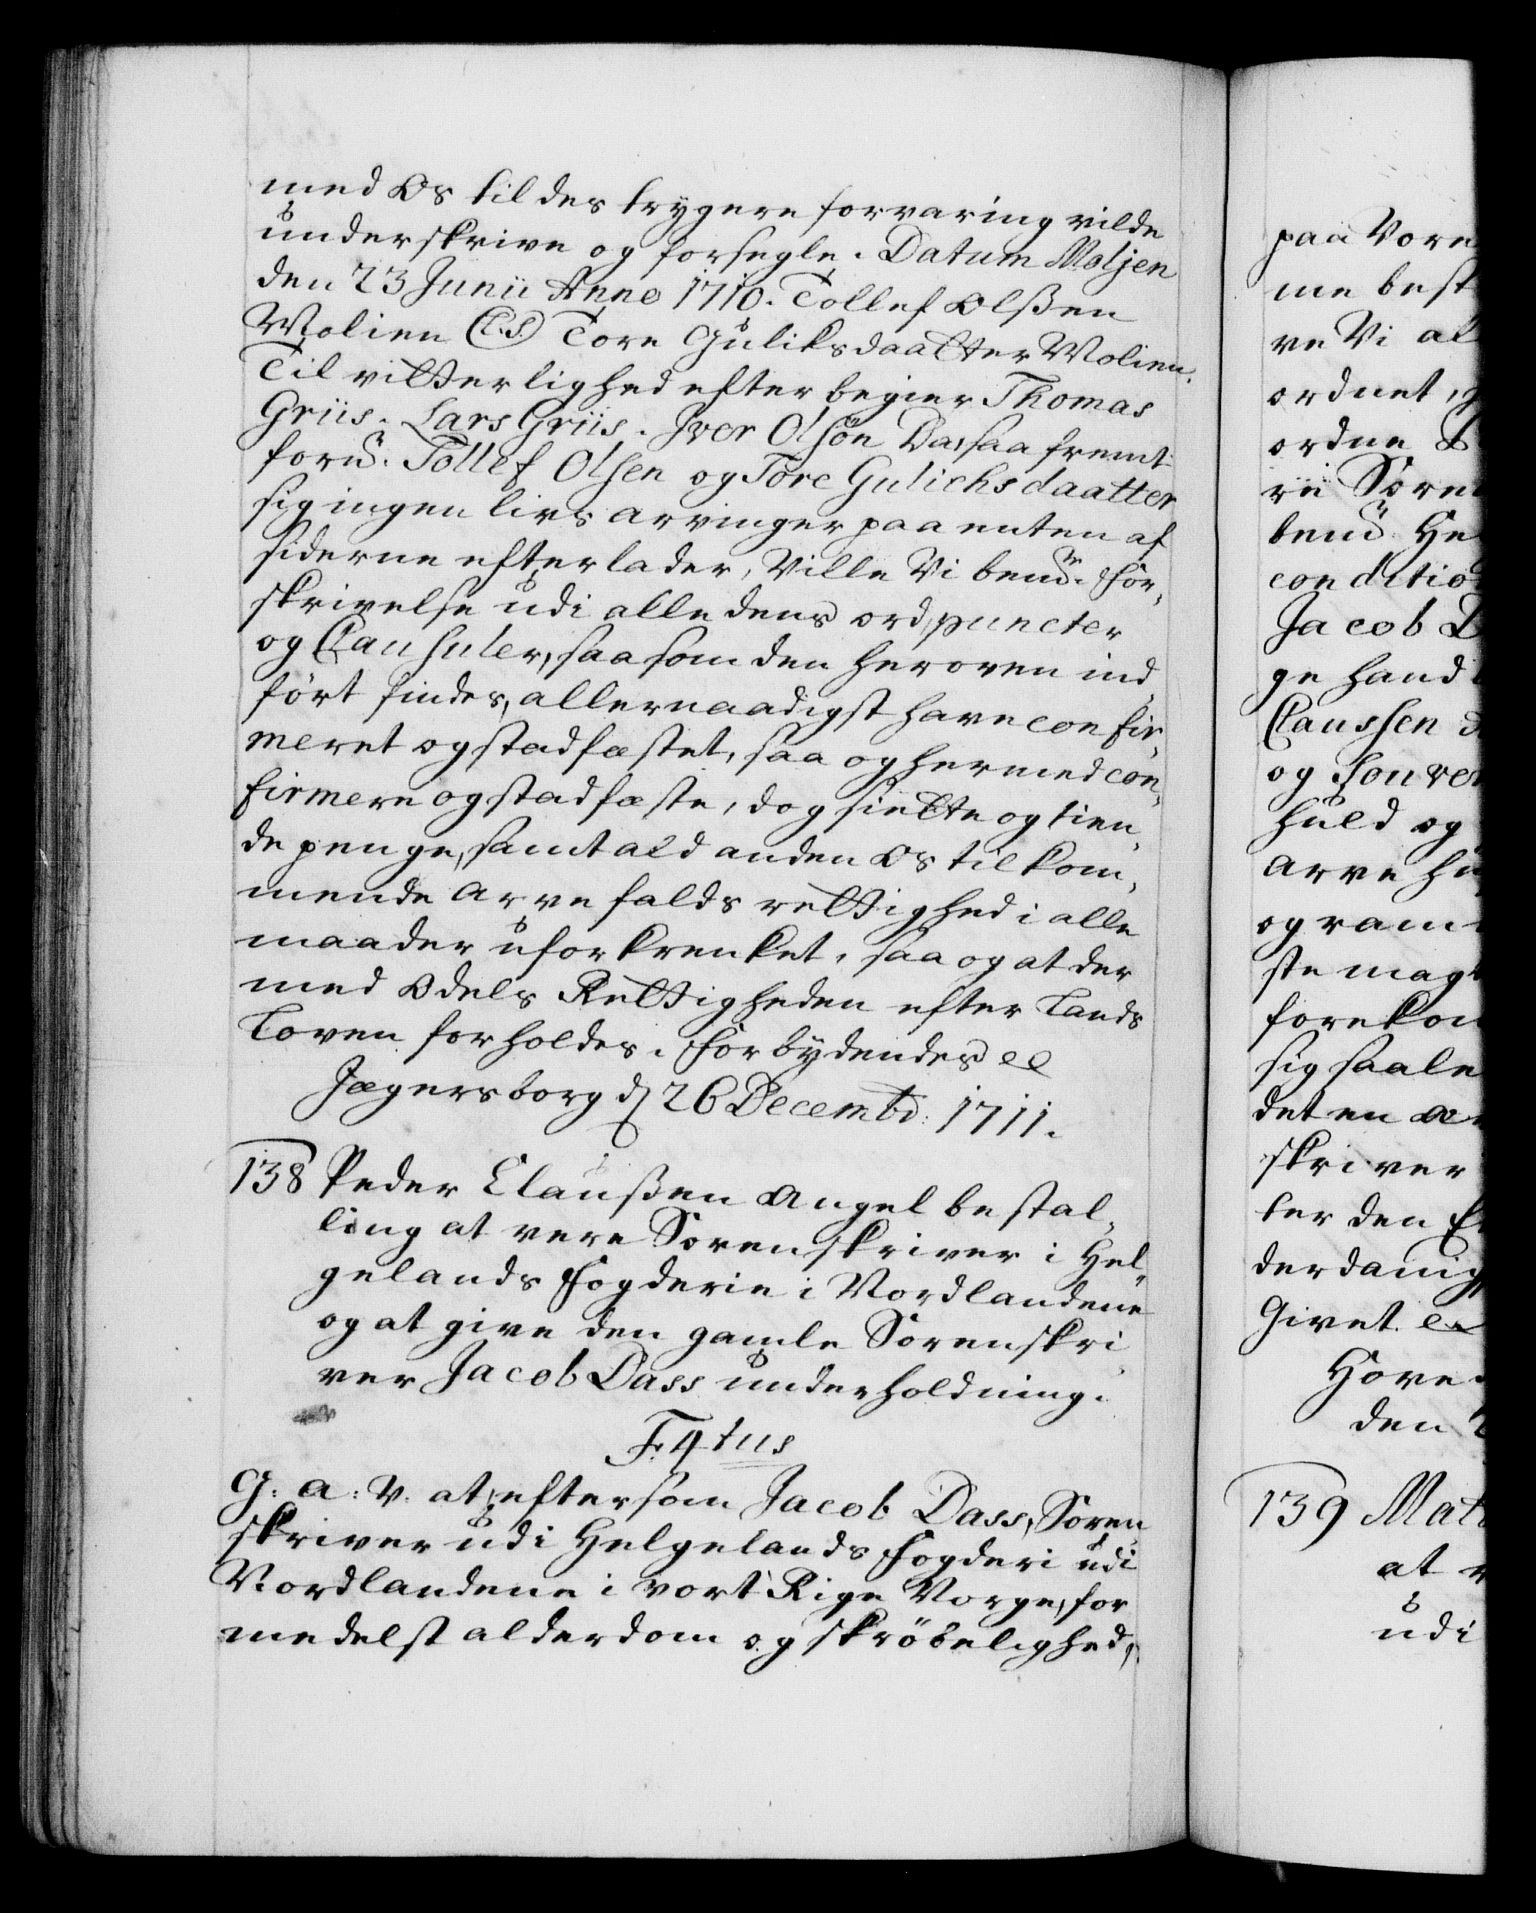 med Os til des trygere forvaring vilde
underskrive og forsegle. Datum Moljen
den 23 Junii Anno 1710. Tollef Olßen
Molien (L.S.) Tore Guliksdaatter Molien.
Til vitterlighed efter begier Thomas
Griis. Lars Griis. Iver Olsön Da, saafremt
fornt. Tollef Olsen og Tore Gulichsdaatter
sig ingen livs arvinger paa enten af
siderne efterlader, Ville Vi bemte. For,
skrivelse udi alle dens ord, puncter
og Clausuler, saasom den heroven ind,
fört findes, allernaadigst have confir,
meret og stadfæstet, saa og hermed con,
firmere og stadfæste, dog siette og tien,
de penge, samt ald anden Os tilkom,
mende arvefalds rettighed i alle
maader uforkrenket, saa og at der
med Odels Rettigheden efter Lands
Loven forholdes. Forbydendes etc
Jægersborg d 26 Decembr: 1711.
138 Peder Claußen Angel bestal,
ling at vere Sorenskriver i Hel,
gelands Fogderie i Nordlandene
og at give den gamle Sorenskri
ver Jacob Dass underholdning.
F. 4tus
G: A: V: at, eftersom Jacob Dass, Soren,
skriver udi Helgelands Fogderi udi
Nordlandene i vort Rige Norge, for
medelst alderdom og skröbelighed,
paa Vore
me best
ve Vi al
ordnet, 
ordne
rii Soren
bemt He
conditio
Jacob D
ge hand
Claussen
og souver
huld og
Arve her
og ram
ste magt
forekom
sig saale
det en
skriver
ter den
derdanig
Givet
Hove
den
139 Mat
at v
udi